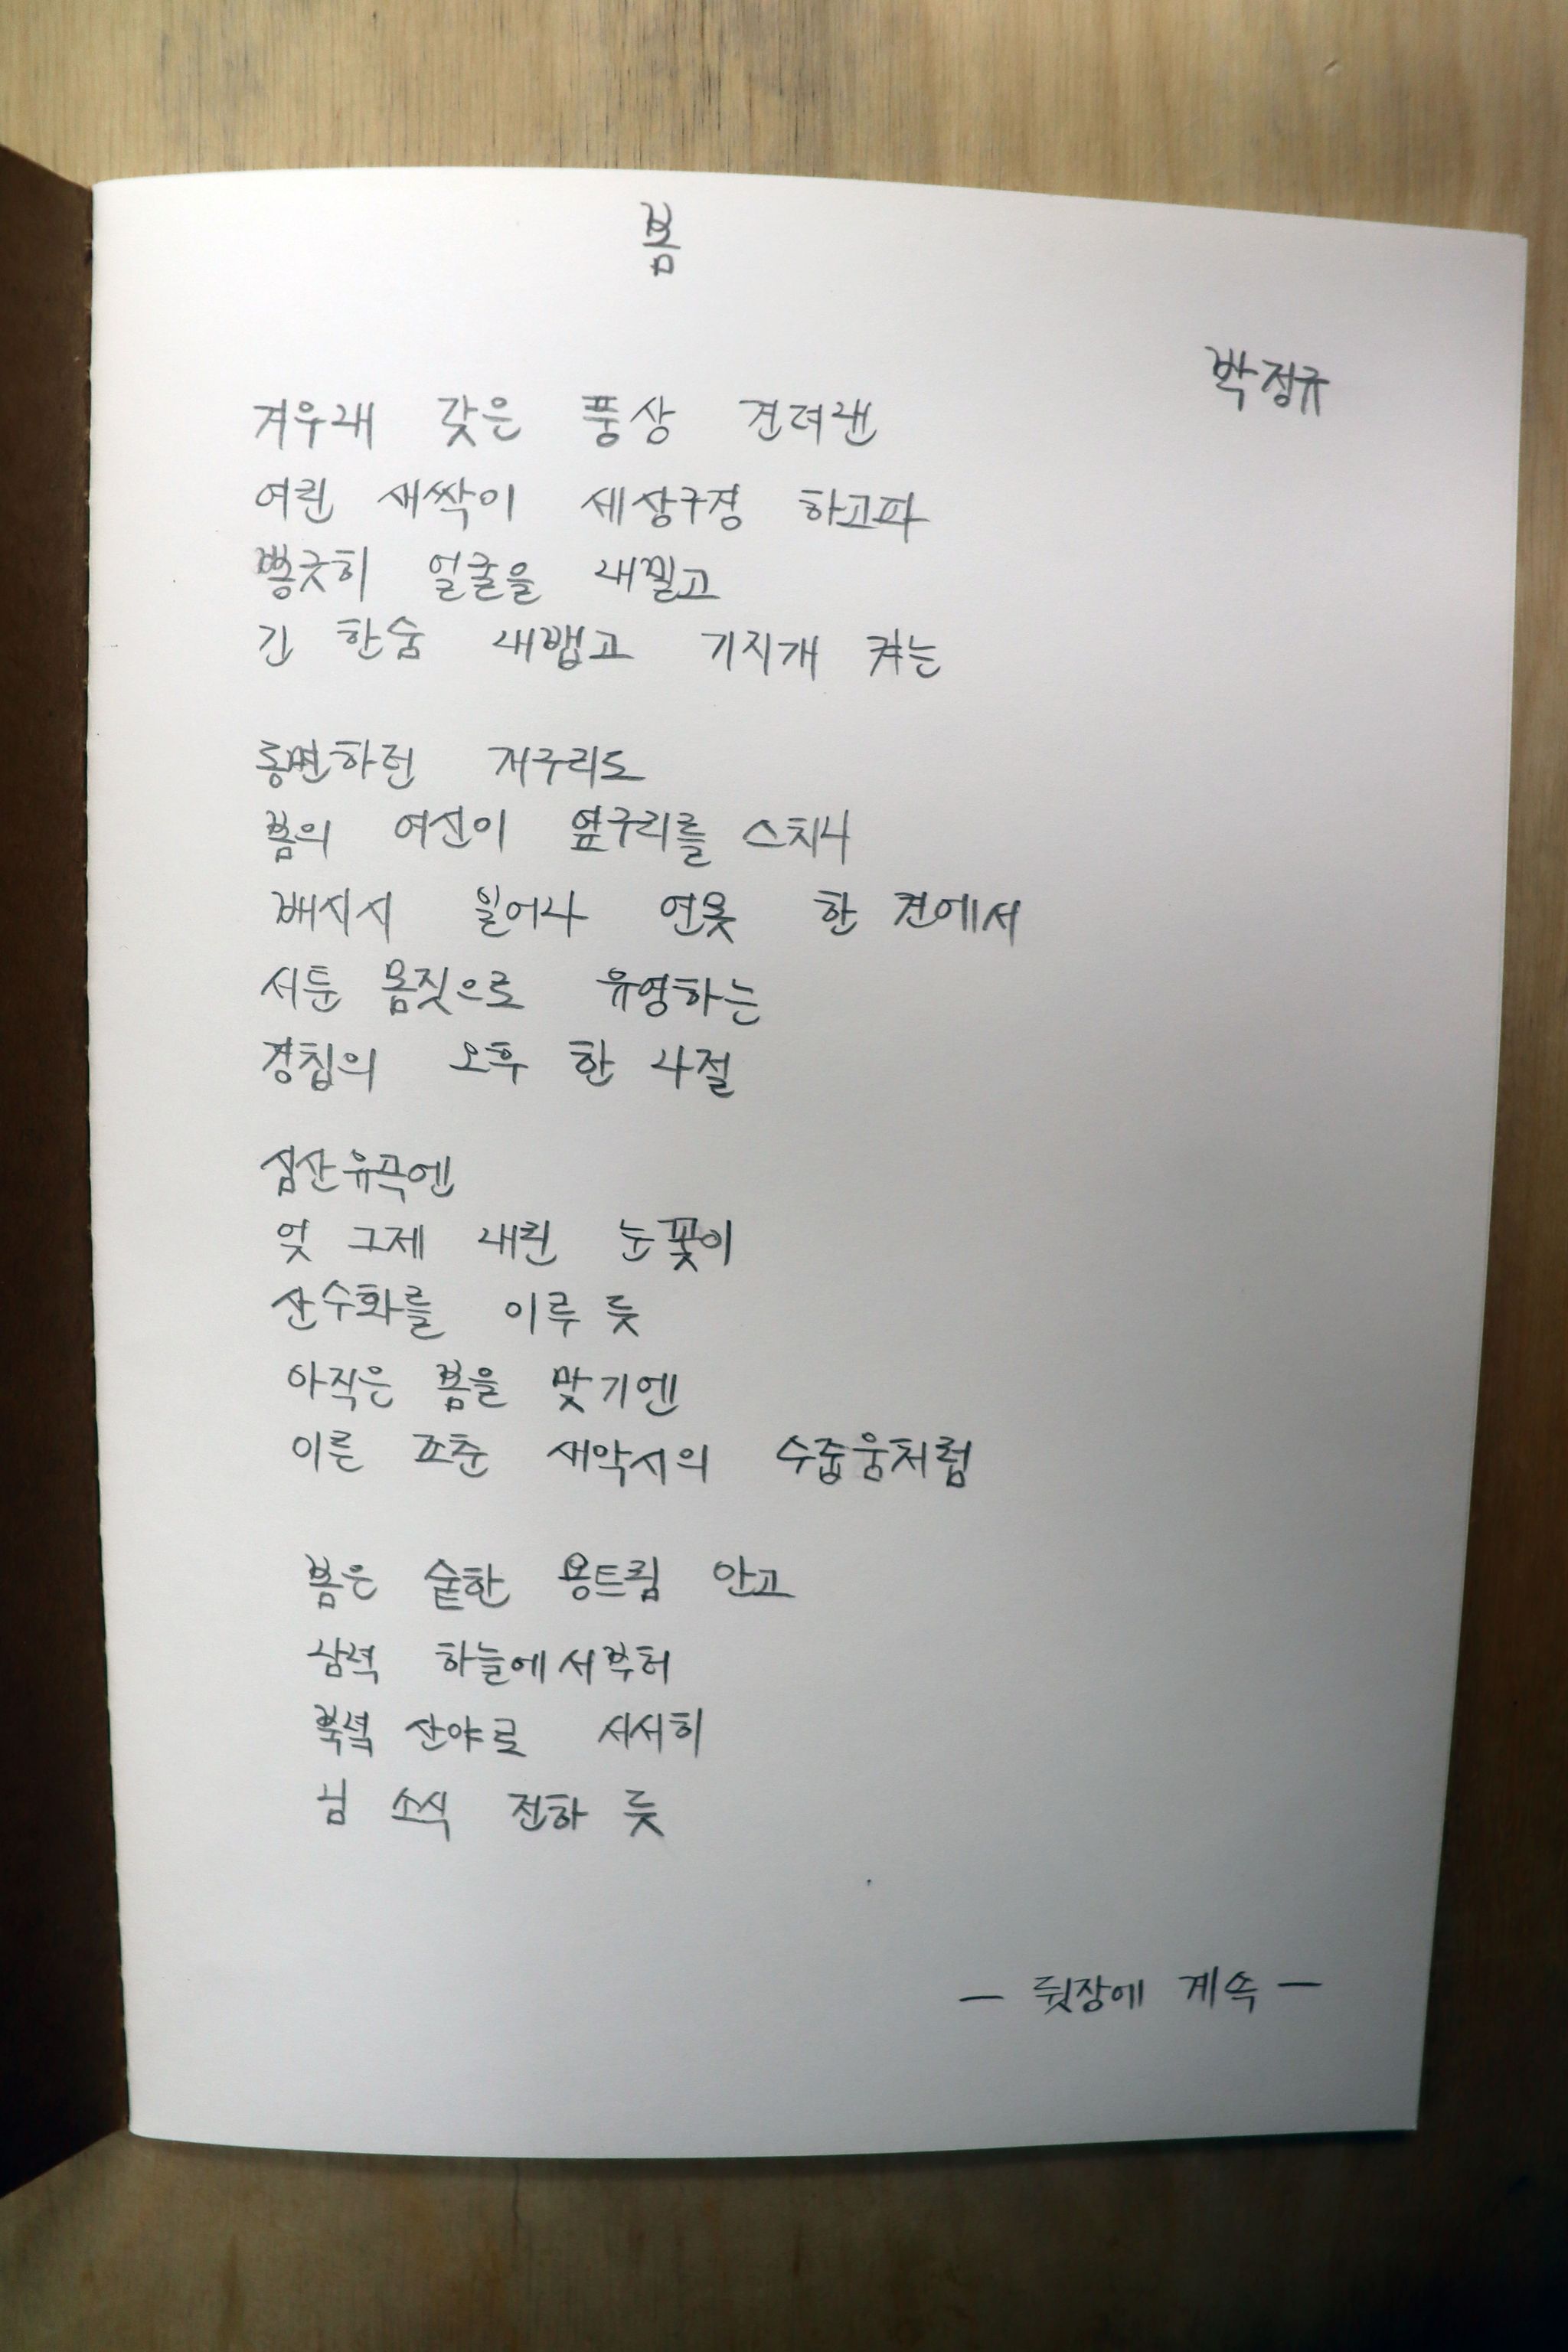 봄
박정규
겨우내 갖은 풍상 견뎌낸
어린 새싹이 세상구경 하고파
쫑긋히 얼굴을 내밀고
긴 한숨 내뱉고 기지개 켜는
동면하던 개구리도
봄의 여신이 옆구리를 스치니
배시시 일어나 연못 한 켠에서
서툰 몸짓으로 유영하는
경칩의 오후 한 나절
심산유곡엔
엊그제 내린 눈꽃이
산수화를 이루 듯
아직은 봄을 맞기엔
이른 초춘 새악시의 수줍움처럼
봄은 숱한 용트림 안고
남녘 하늘에서부터
북녘 산야로 서서히
님 소식 전하 듯
— 뒷장에 계속 —